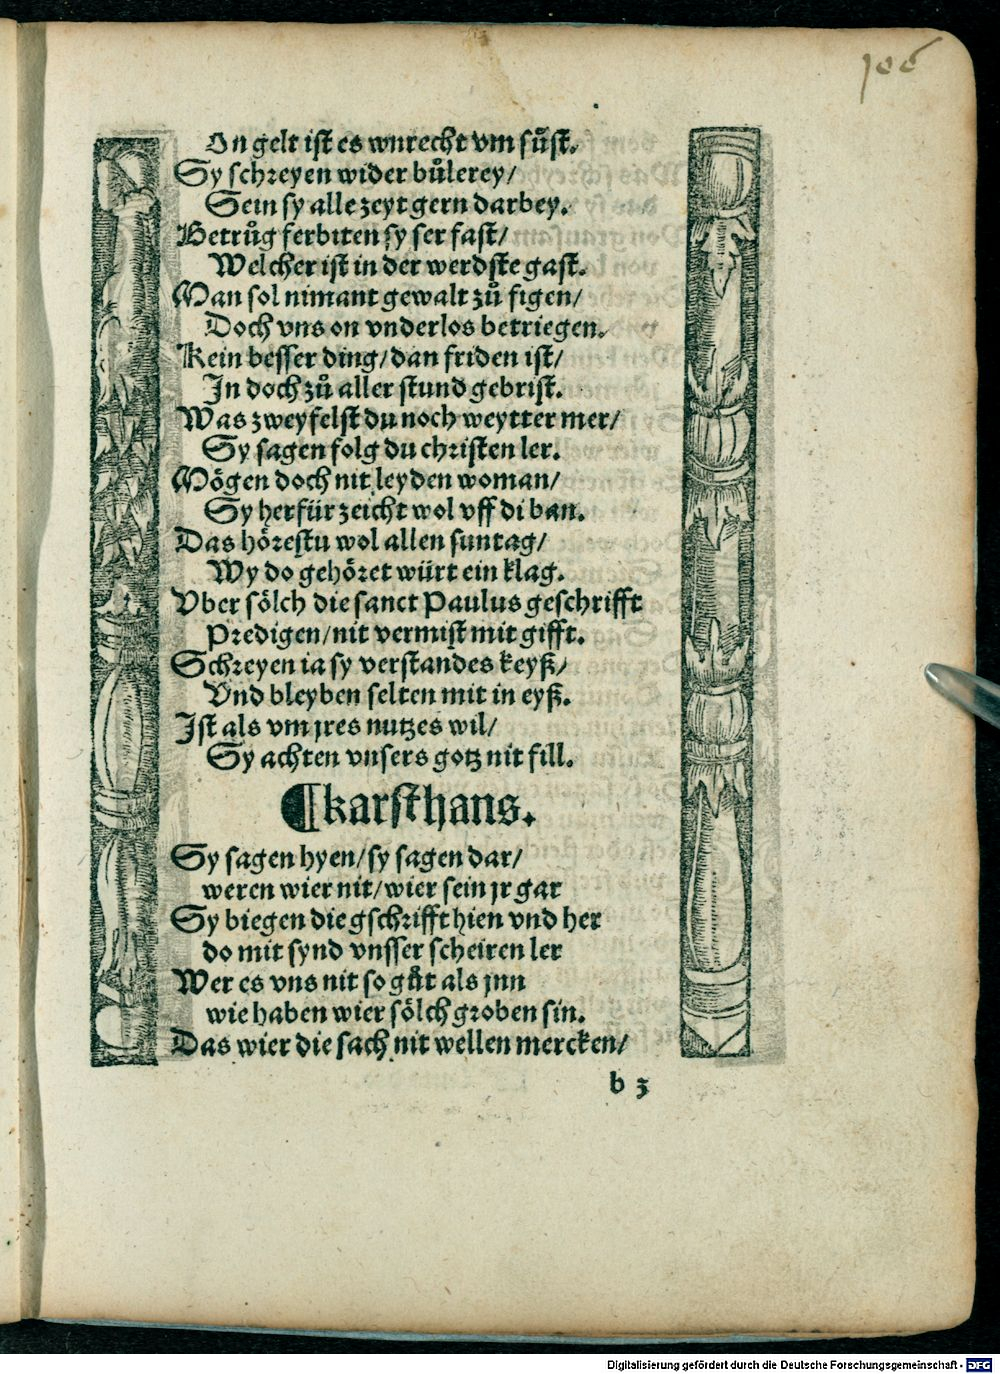 106
On gelt ist es vnrecht vm sůst.
Sy schreyen wider bůlerey/
Sein sy alle zeyt gern darbey.
Betrůg ferbiten sy ser fast/
Welcher ist in der werdste gast.
Man sol nimant gewalt zů figen/
Doch vns on vnderlos betriegen.
Kein besser ding/dan friden ist/
In doch zů aller stund gebrist.
Was zweyfelst du noch weytter mer/
Sy sagen folg du christen ler.
Mögen doch nit leyden woman/
Sy herfür zeicht wol vff di ban.
Das hörestu wol allen suntag/
Wy do gehöret würt ein klag.
Vber sölch die sanct Paulus geschrifft
Predigen/nit vermist mit gifft.
Schreyen ia sy verstandes keyß/
Vnd bleyben selten mit in eyß.
Ist als vm jres nutzes wil/
Sy achten vnsers gotz nit fill.
¶karsthans.
Sy sagen hyen/sy sagen dar/
weren wier nit/wier sein jr gar
Sy biegen die gschrifft hien vnd her
do mit synd vnsser scheiren ler
Wer es vns nit so gůt als jnn
wie haben wier sölch groben sin.
Das wier die sach nit wellen mercken/
b 3
Digitalisierung gefördert durch die Deutsche Forschungsgemeinschaft - DFG